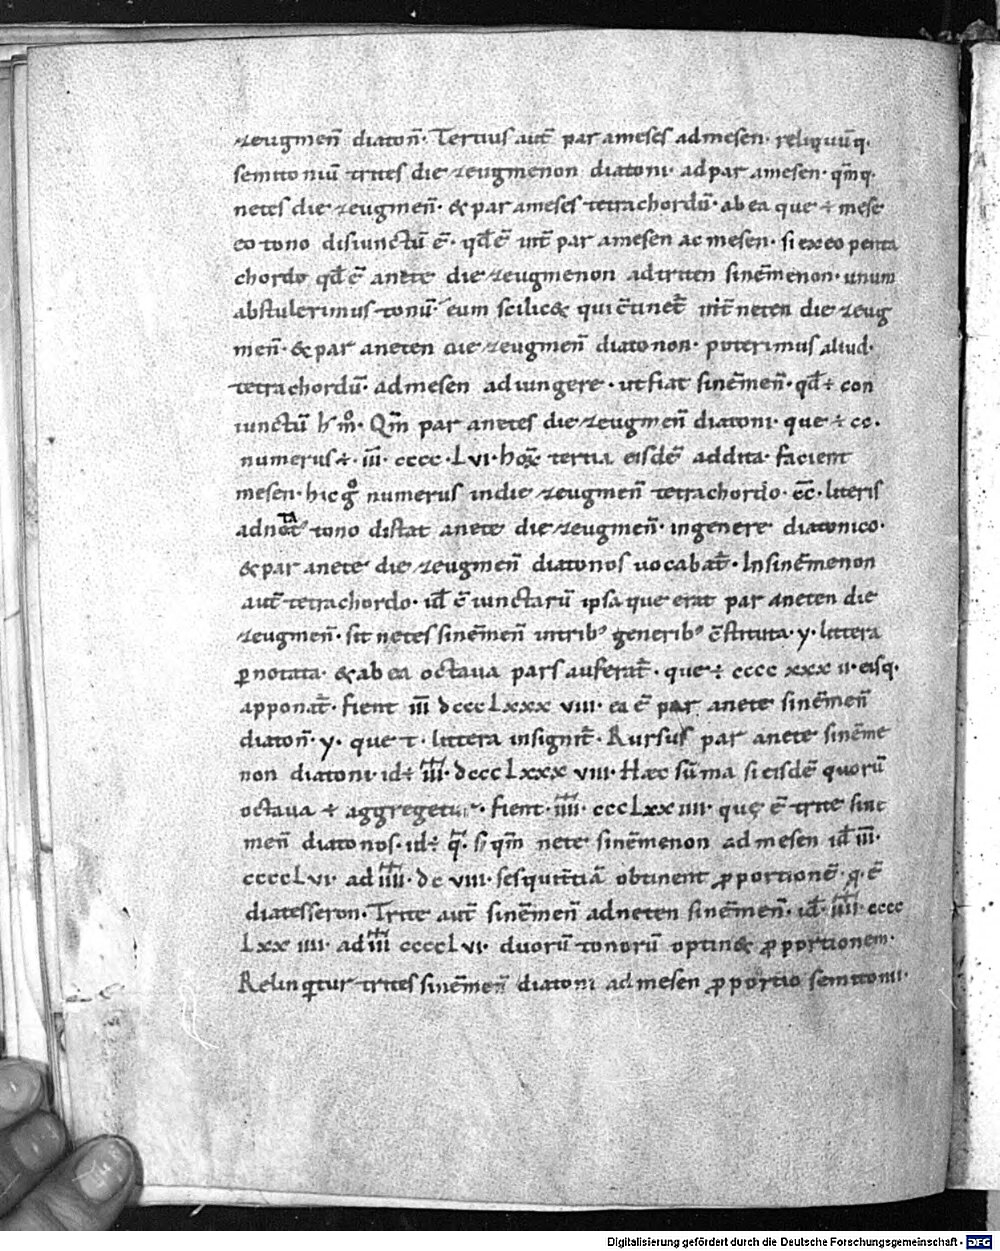 zeugmen̄ diaton̄· Tertius aut̄ par ameses ad mesen· reliquūq·
semitoniū trites die zeugmenon diatoni· ad par amesen· qm̄q·
netes die zeugmen̄· & par ameses tetrachordū· ab ea que ÷ mese
eo tono disiunctū ē· qd̄ ē int̄ par amesen ac mesen· si ex eo penta
chordo qd̄ ē a nete die zeugmenon ad triten sinēmenon· unum
abstulerimus tonū· eum scilic& qui c̄tinet̄ int̄ neten die zeug
men̄· & par aneten die zeugmen̄ diatonon· poterimus aliud·
tetrachordū· ad mesen adiungere· ut fiat sinēmen̄· qd̄ ÷ con
iunctū h̄ m̊· Qm̄ par anetes die zeugmen̄ diatoni· que ÷ cc·
numerus ÷· IIĪ· cccc·Lvi· hoꝝ tertia eisdē addita· facient
mesen· hic g̊ numerus in die zeugmen̄ tetrachordo· c̄c̄· literis
adnotat tono distat a nete die zeugmen̄· in genere diatonico·
& par anete die zeugmen̄ diatonos uocabat̄· In sinēmenon
aut̄ tetrachordo· id̄ ē iunctarū ipsa que erat par aneten die
zeugmen̄· sit netes sinēmen̄ in tribꝰ generibꝰ c̄stituta· y· littera
ꝑnotata· & ab ea octaua pars auferat̄· que ÷ cccc xxx ii· eisq·
apponat̄· fient IIĪ dccc Lxxx viii· ea ē par anete sinēmen̄
diaton̄· y· que t· littera insignit̄· Rursus par anete sinēme
non diatoni· id ÷ IIĪ· dccc Lxxx viii· Hæc sūma si eisdē quorū
octaua ÷ aggregetur· fient· IIIĪ· ccc Lxx iiii· quę ē trite sine
men̄ diatonos· id ÷ q̄· s; qm̄ nete sinēmenon ad mesen id̄ IIĪ·
cccc Lvi· ad IIIĪ· dc viii· sesquit̄tiā obtinent ꝓportionē· q· ē
diatesseron· Trite aut̄ sinēmen̄ ad neten sinēmen̄· id̄· IIIĪ· cccc
Lxx iiii· ad IIĪ cccc Lvi· duorū tonorū optin& ꝓportionem·
Relinq̄tur trites sinēmen̄ diatoni ad mesen ꝓportio semitonii·
Digitalisierung gefördert durch die Deutsche Forschungsgemeinschaft - DFG